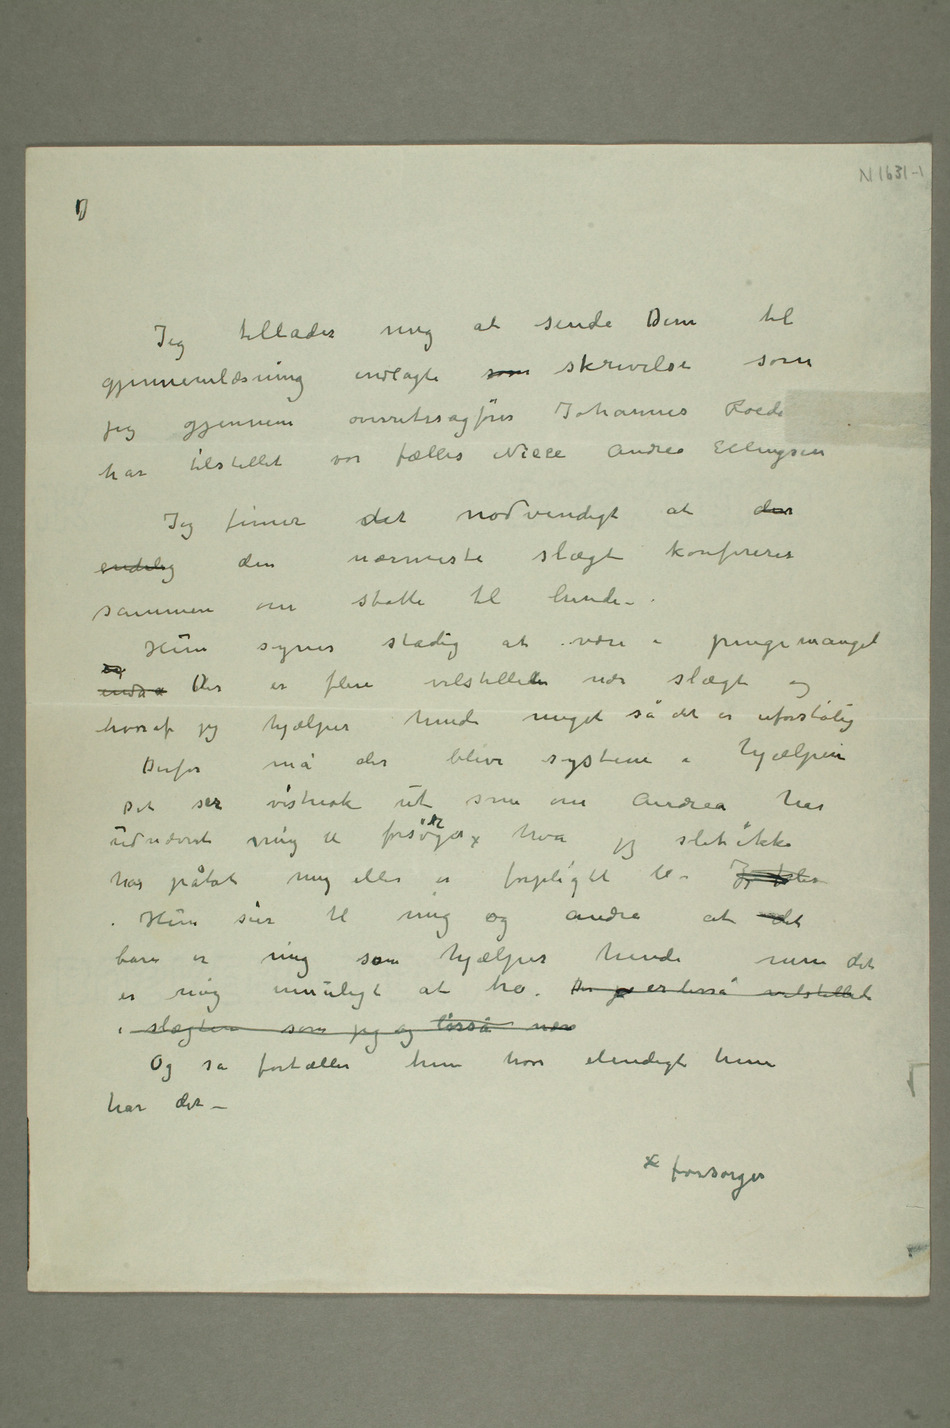 N 1631-1
1)
Jeg tillader mig at sende Dem til
gjennemlæsning indlagte som skrivelse som
jeg gjennem overretssagfører Johannes Roede
har tilstillet vor fælles Niece Andrea Ellingsen
Jeg finner det nødvendigt at der
endelig den nærmeste slægt konfereres
sammen om støtte til hende –.
Hun synes stadig at være i pengemangel
og
endda Der er flere velstillede nær slægt og
hvoraf jeg hjælper hende meget så det er uforståelig
Derfor må der blive system i hjælpen
Det ser vistnok ut som om Andrea har
udnævnt mig til forsørger x hva jeg slet ikke
har påtat mig eller er forpligtet til – Jeg føler
. Hun sier til mig og andre at det
bare er mig som hjælper hende men det
er mig umuligt at tro. Der er liså velstillet
i slægten som jeg og lisså nær
Og så fortæller hun hvor elendigt hun
har det –
x forsørger